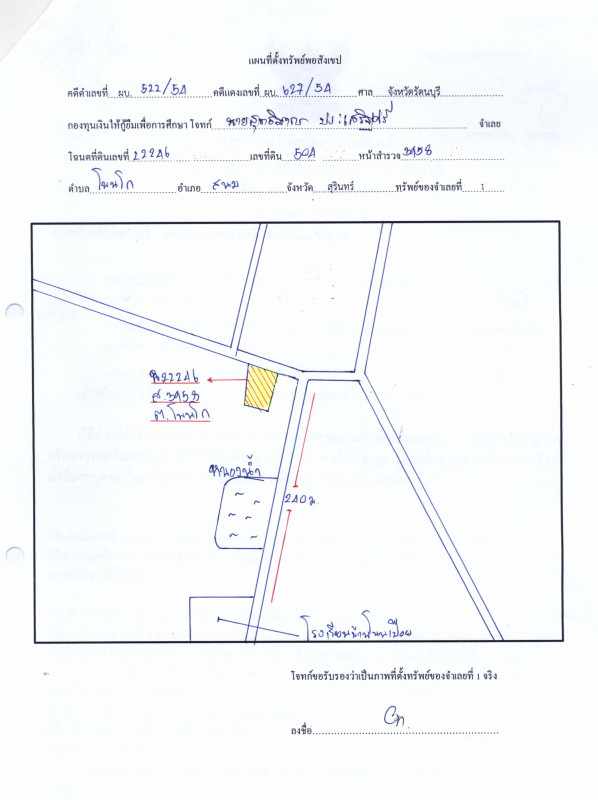 แผนที่ตั้งทรัพย์พอสังเขป
คดีดำเลขที่ ผบ. 522/54 คดีแดงเลขที่ ผบ. 627/54 ศาล จังหวัดรัตนบุรี
กองทุนเงินให้กู้ยืมเพื่อการศึกษา โจทก์ จำเลย
โฉนดที่ดินเลขที่ 22246 เลขที่ดิน 504 หน้าสำรวจ 3958
ตำบล โนนโก อำเภอ สนม จังหวัด สุรินทร์ ทรัพย์ของจำเลยที่ 1
ฉ.22246
ส.3958
ต.โนนโก
หนองน้ำ
240 ม.
โรงเรียนบ้านโนนเปือย
โจทก์ขอรับรองว่าเป็นภาพที่ตั้งทรัพย์ของจำเลยที่ 1 จริง
ลงชื่อ